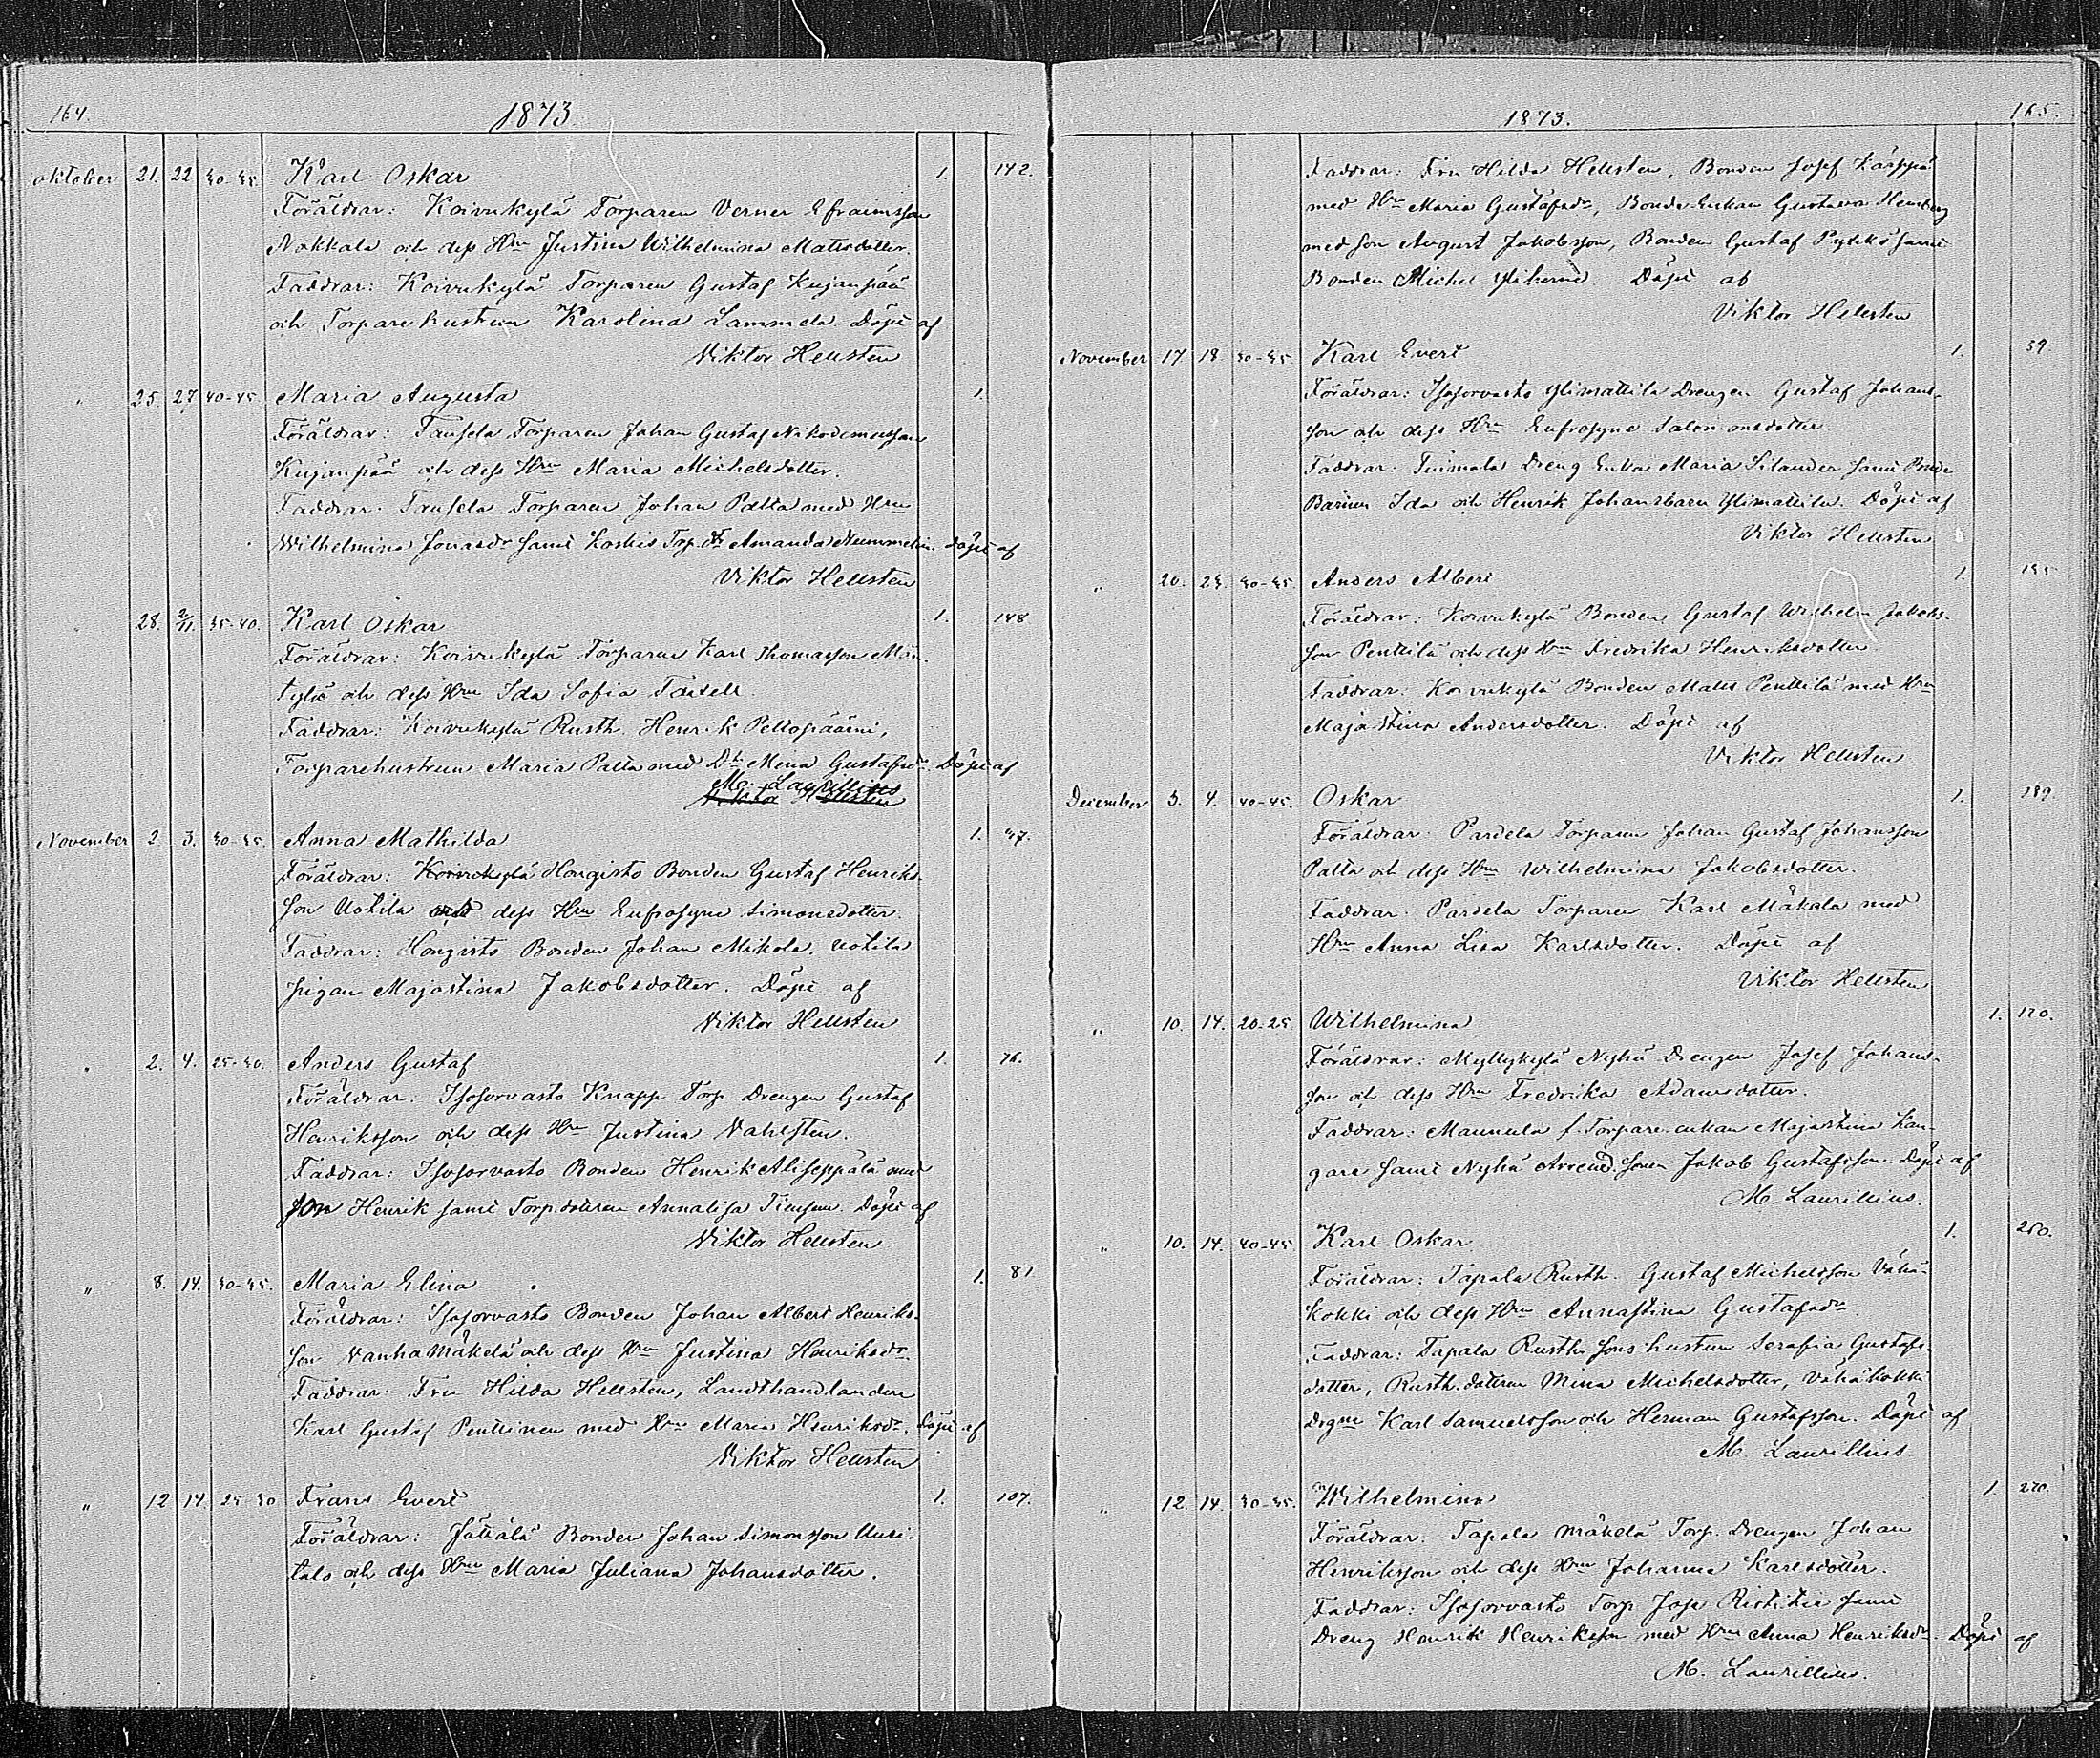 164.
1873
oktober 21. 22 30-35. Karl Oskar 1. 142.
Föräldrar: Koivukylä Torparen Verner Efraimsson
Nokkala och dess Hru Justina Wilhelmina Mattsdotter.
Faddrar: Koivukylä Torparen Gustaf Kujanpää
och Torparehustrun Karolina Lammela. Döpt af
Viktor Hellsten
" 25. 27 40-45. Maria Augusta 1.
Föräldrar: Tausela Torparen Johan Gustaf Nikodemusson
Kujanpää och dess Hru Maria Michelsdotter.
Faddrar: Tausela Torparen Johan Palta med Hru
Wilhelmina Jonasdr samt Koskis Trp. dr Amanda Nummelin. döpt af
Viktor Hellsten
" 28. 2/11. 35-40. Karl Oskar 1. 148
Föräldrar: Koivukylä Torparen Karl Thomasson Män-
tylä och dess Hru Ida Sofia Taxell.
Faddrar: Koivukylä Rusth. Henrik Peltopääni,
Torparehustrun Maria Palta med Dtr Mina Gustafsdr. Döpt af
M. Laurillius
Viktor Hellsten
November 2. 3. 30-35. Anna Mathilda 1. 47.
Föräldrar: Koivukylä Hongisto Bonden Gustaf Henriks-
son Uotila och dess Hru Eufrosyne Simonsdotter.
Faddrar: Hongisto Bonden Johan Mikola. Uotila
pigan Majastina Jakobsdotter. Döpt af
Viktor Hellsten
" 2. 4. 25-30. Anders Gustaf 1. 76.
Föräldrar: Isosorvasto Knapp Torp Drengen Gustaf
Henriksson och dess Hru Justina Vahlsten.
Faddrar: Isosorvasto Bonden Henrik Aliseppälä med
son Henrik samt Torp.dotren Annalisa Döpt af
Viktor Hellsten
" 8. 14. 30-35. Maria Elina 1. 81
Föräldrar: Isosorvasto Bonden Johan Albert Henriks-
son Vanha Mäkelä och dess Hru Justina Henriksdr
Faddrar: Fru Hilda Hellsten, Landthandlanden
Karl Gustaf Penttinen med Hru Maria Henriksdr. Döpt af
Viktor Hellsten
" 12 14. 25-30 Frans Evert 1. 107.
Föräldrar: Jättälä Bonden Johan Simonsson Uusi-
talo och dess Hru Maria Juliana Johansdotter.
1873.
165.
Faddrar: Fru Hilda Hellsten, Bonden Josef Kääppä
med Hru Maria Gustafsdr, Bonde-Enkan Gustava Hemberg
med son August Jakobsson, Bonden Gustaf samt
Bonden Michel Döpt af
Viktor Hellsten
November 17. 18 30-35. Karl Evert 1. 59.
Föräldrar: Isosorvasto Ylimattila Drengen Gustaf Johans-
son och dess Hru Eufrosyne Salomonsdotter.
Faddrar: Tuimala Dreng Enka Maria Silander samt Bonde
Barnen Ida och Henrik Johansbarn Ylimattila. Döpt af
Viktor Hellsten
" 20. 23. 30-35 Anders Albert 1.
Föräldrar: Koivukylä Bonden Gustaf Wilhelm Jakobs-
son Penttilä och dess Hru Fredrika Henriksdotter.
Faddrar: Koivukylä Bonden Matts Penttilä med Hru
Majastina Andersdotter. Döpt af
Viktor Hellsten
December 3. 4. 40-45. Oskar 1. 189.
Föräldrar: Pardela Torparen Johan Gustaf Johansson
Palta och dess Hru Wilhelmina Jakobsdotter.
Faddrar: Pardela Torparen Karl Mäkälä med
Hru Anna Lisa Karlsdotter. Döpt af
Viktor Hellsten
" 10. 14. 20-25 Wilhelmina 1. 120.
Föräldrar: Myllykylä Nyhii Drengen Josef Johans-
son och dess Hru Fredrika Adamsdotter.
Faddrar: Mannula f. Torpare-enkan Majastina Kan-
gare samt Nyhii Arrend. Sonen Jakob Gustafsson. Döpt af
M. Laurillius.
" 10. 14. 40-45 Karl Oskar 1. 260.
Föräldrar: Tapala Rusth. Gustaf Michelsson Vähä-
kokki och dess Hru Annastina Gustafsdr
Faddrar: Tapala Rusth. sons hustrun Serafia Gustafs-
dotter, Rusth. dotren Mina Michelsdotter, Vähäkokki
Drgne Karl Samuelsson och Herman Gustafsson. Döpt af
M. Laurillius.
" 12. 14. 30-35. Wilhelmina 1. 270.
Föräldrar: Tapala Mäkelä Torp. Drengen Johan
Henriksson och dess Hru Johanna Karlsdotter.
Faddrar: Isosorvasto Torp. Josef samt
Dreng Henrik Henriksson med Hru Anna Henriksdr. Döpt af
M. Laurillius.